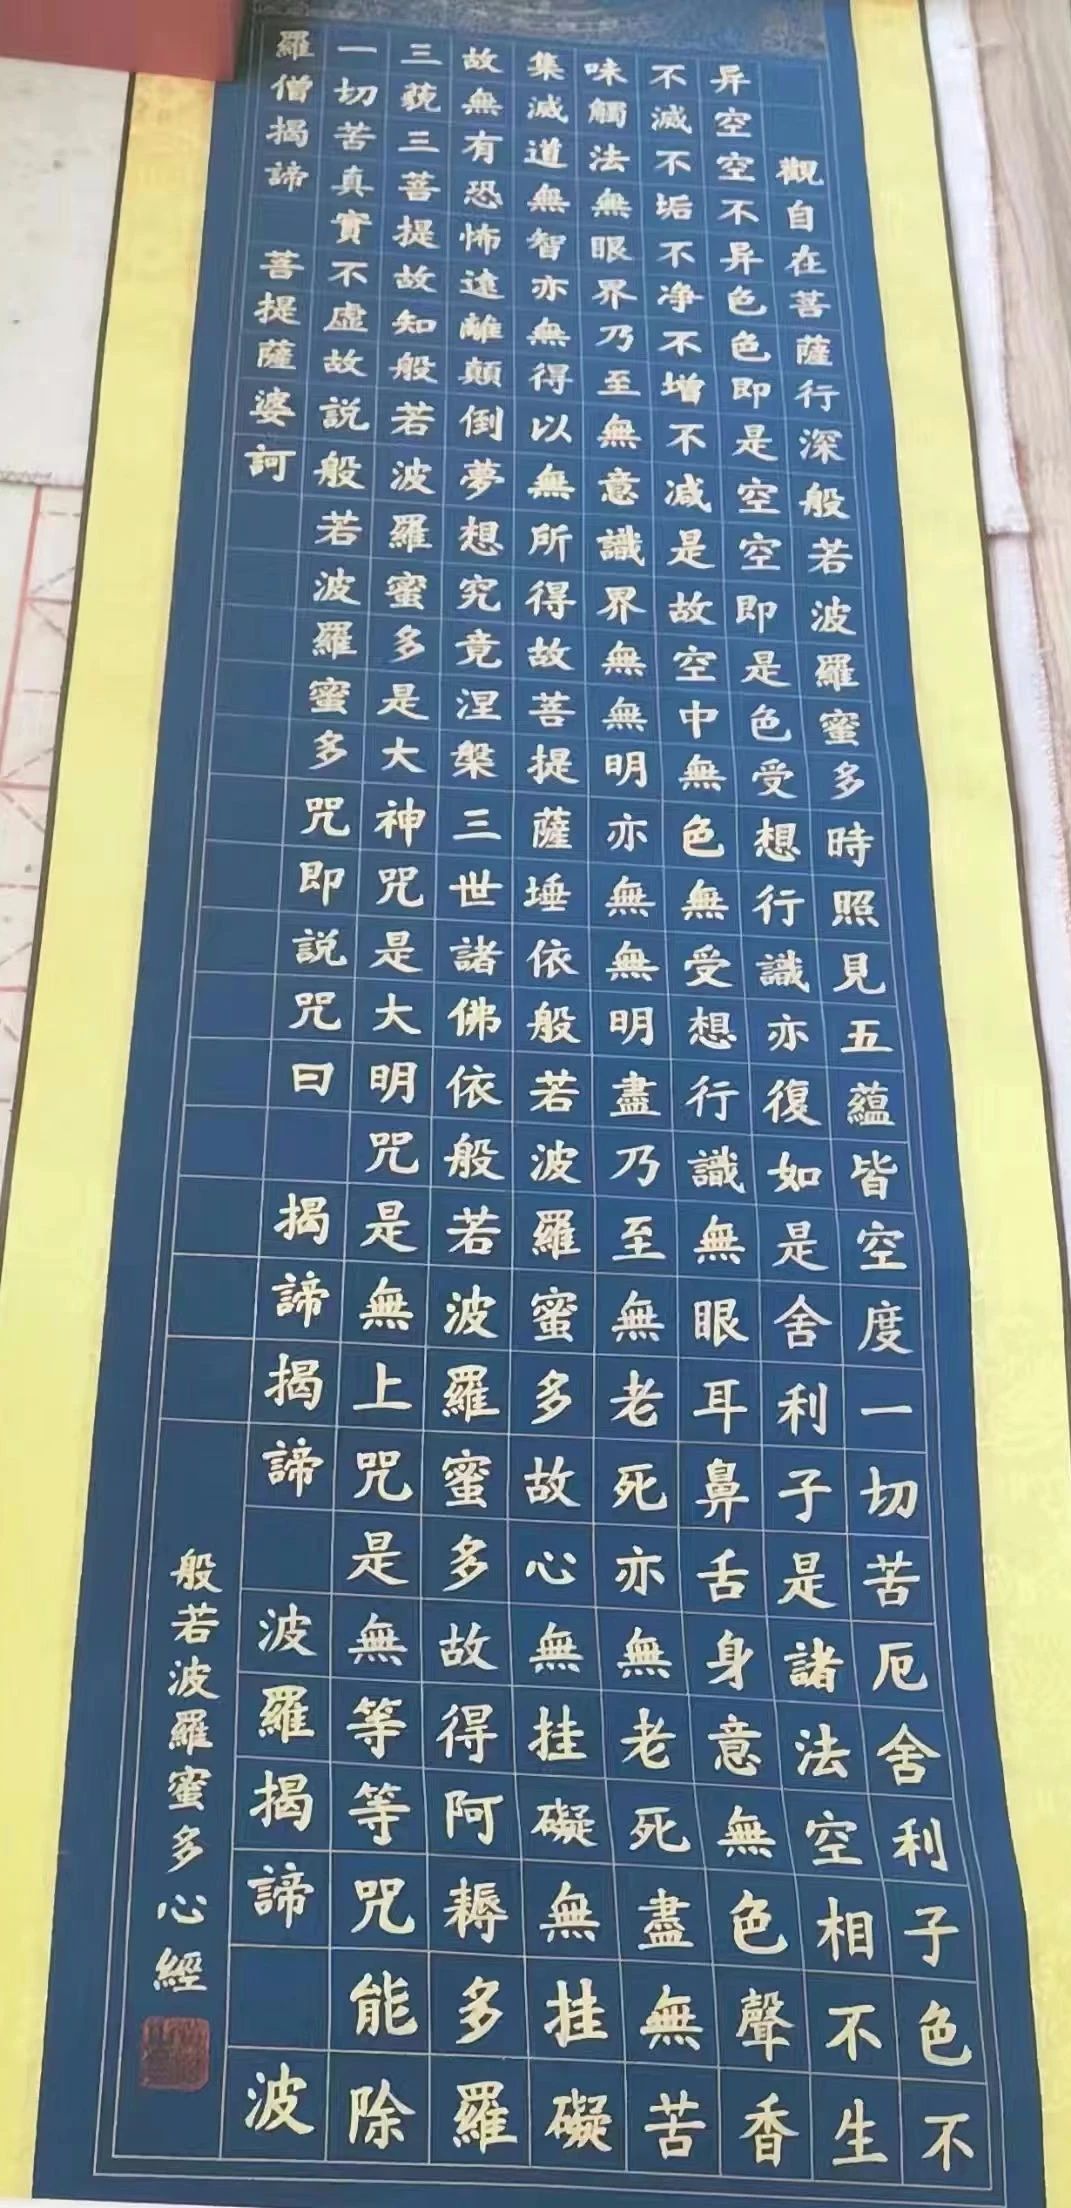 觀自在菩薩行深般若波羅蜜多時照見五蘊皆空度一切苦厄舍利子色不
异空空不异色色即是空空即是色受想行識亦復如是舍利子是諸法空相不生
不滅不垢不净不增不减是故空中無色無受想行識無眼耳鼻舌身意無色聲香
味觸法無眼界乃至無意識界無無明亦無無明盡乃至無老死亦無老死盡無苦
集滅道無智亦無得以無所得故菩提薩埵依般若波羅蜜多故心無挂礙無挂礙
故無有恐怖遠離顛倒夢想究竟涅槃三世諸佛依般若波羅蜜多故得阿耨多羅
三藐三菩提故知般若波羅蜜多是大神咒是大明咒是無上咒是無等等咒能除
一切苦真實不虛故説般若波羅蜜多咒即説咒曰 揭諦揭諦 波羅揭諦 波
羅僧揭諦 菩提薩婆訶
般若波羅蜜多心經